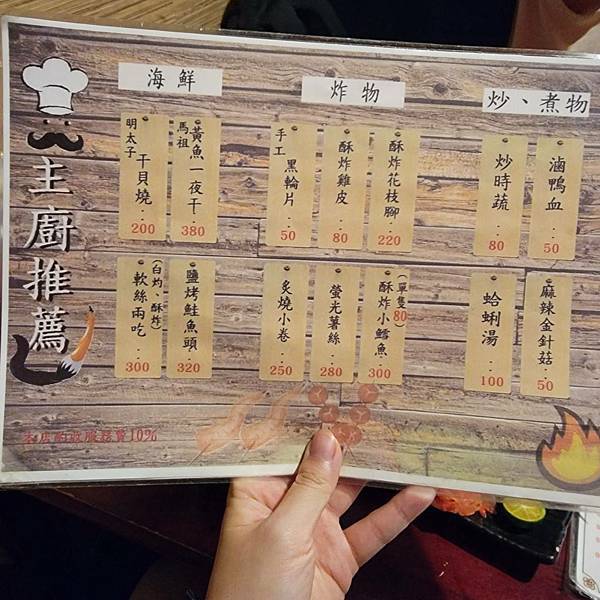 主廚推薦
海鮮
明太子干貝燒..200
馬祖黃魚一夜干..380
(白灼、酥炸)軟絲兩吃..300
鹽烤鮭魚頭..320
炸物
手工黑輪片..50
酥炸雞皮..80
酥炸花枝腳..220
炙燒小卷..250
螢光薯絲..280
酥炸小鱈魚(單隻80)..300
炒、煮物
炒時蔬..80
滷鴨血..50
蛤蜊湯..100
麻辣金針菇..50
本店酌收服務費10%